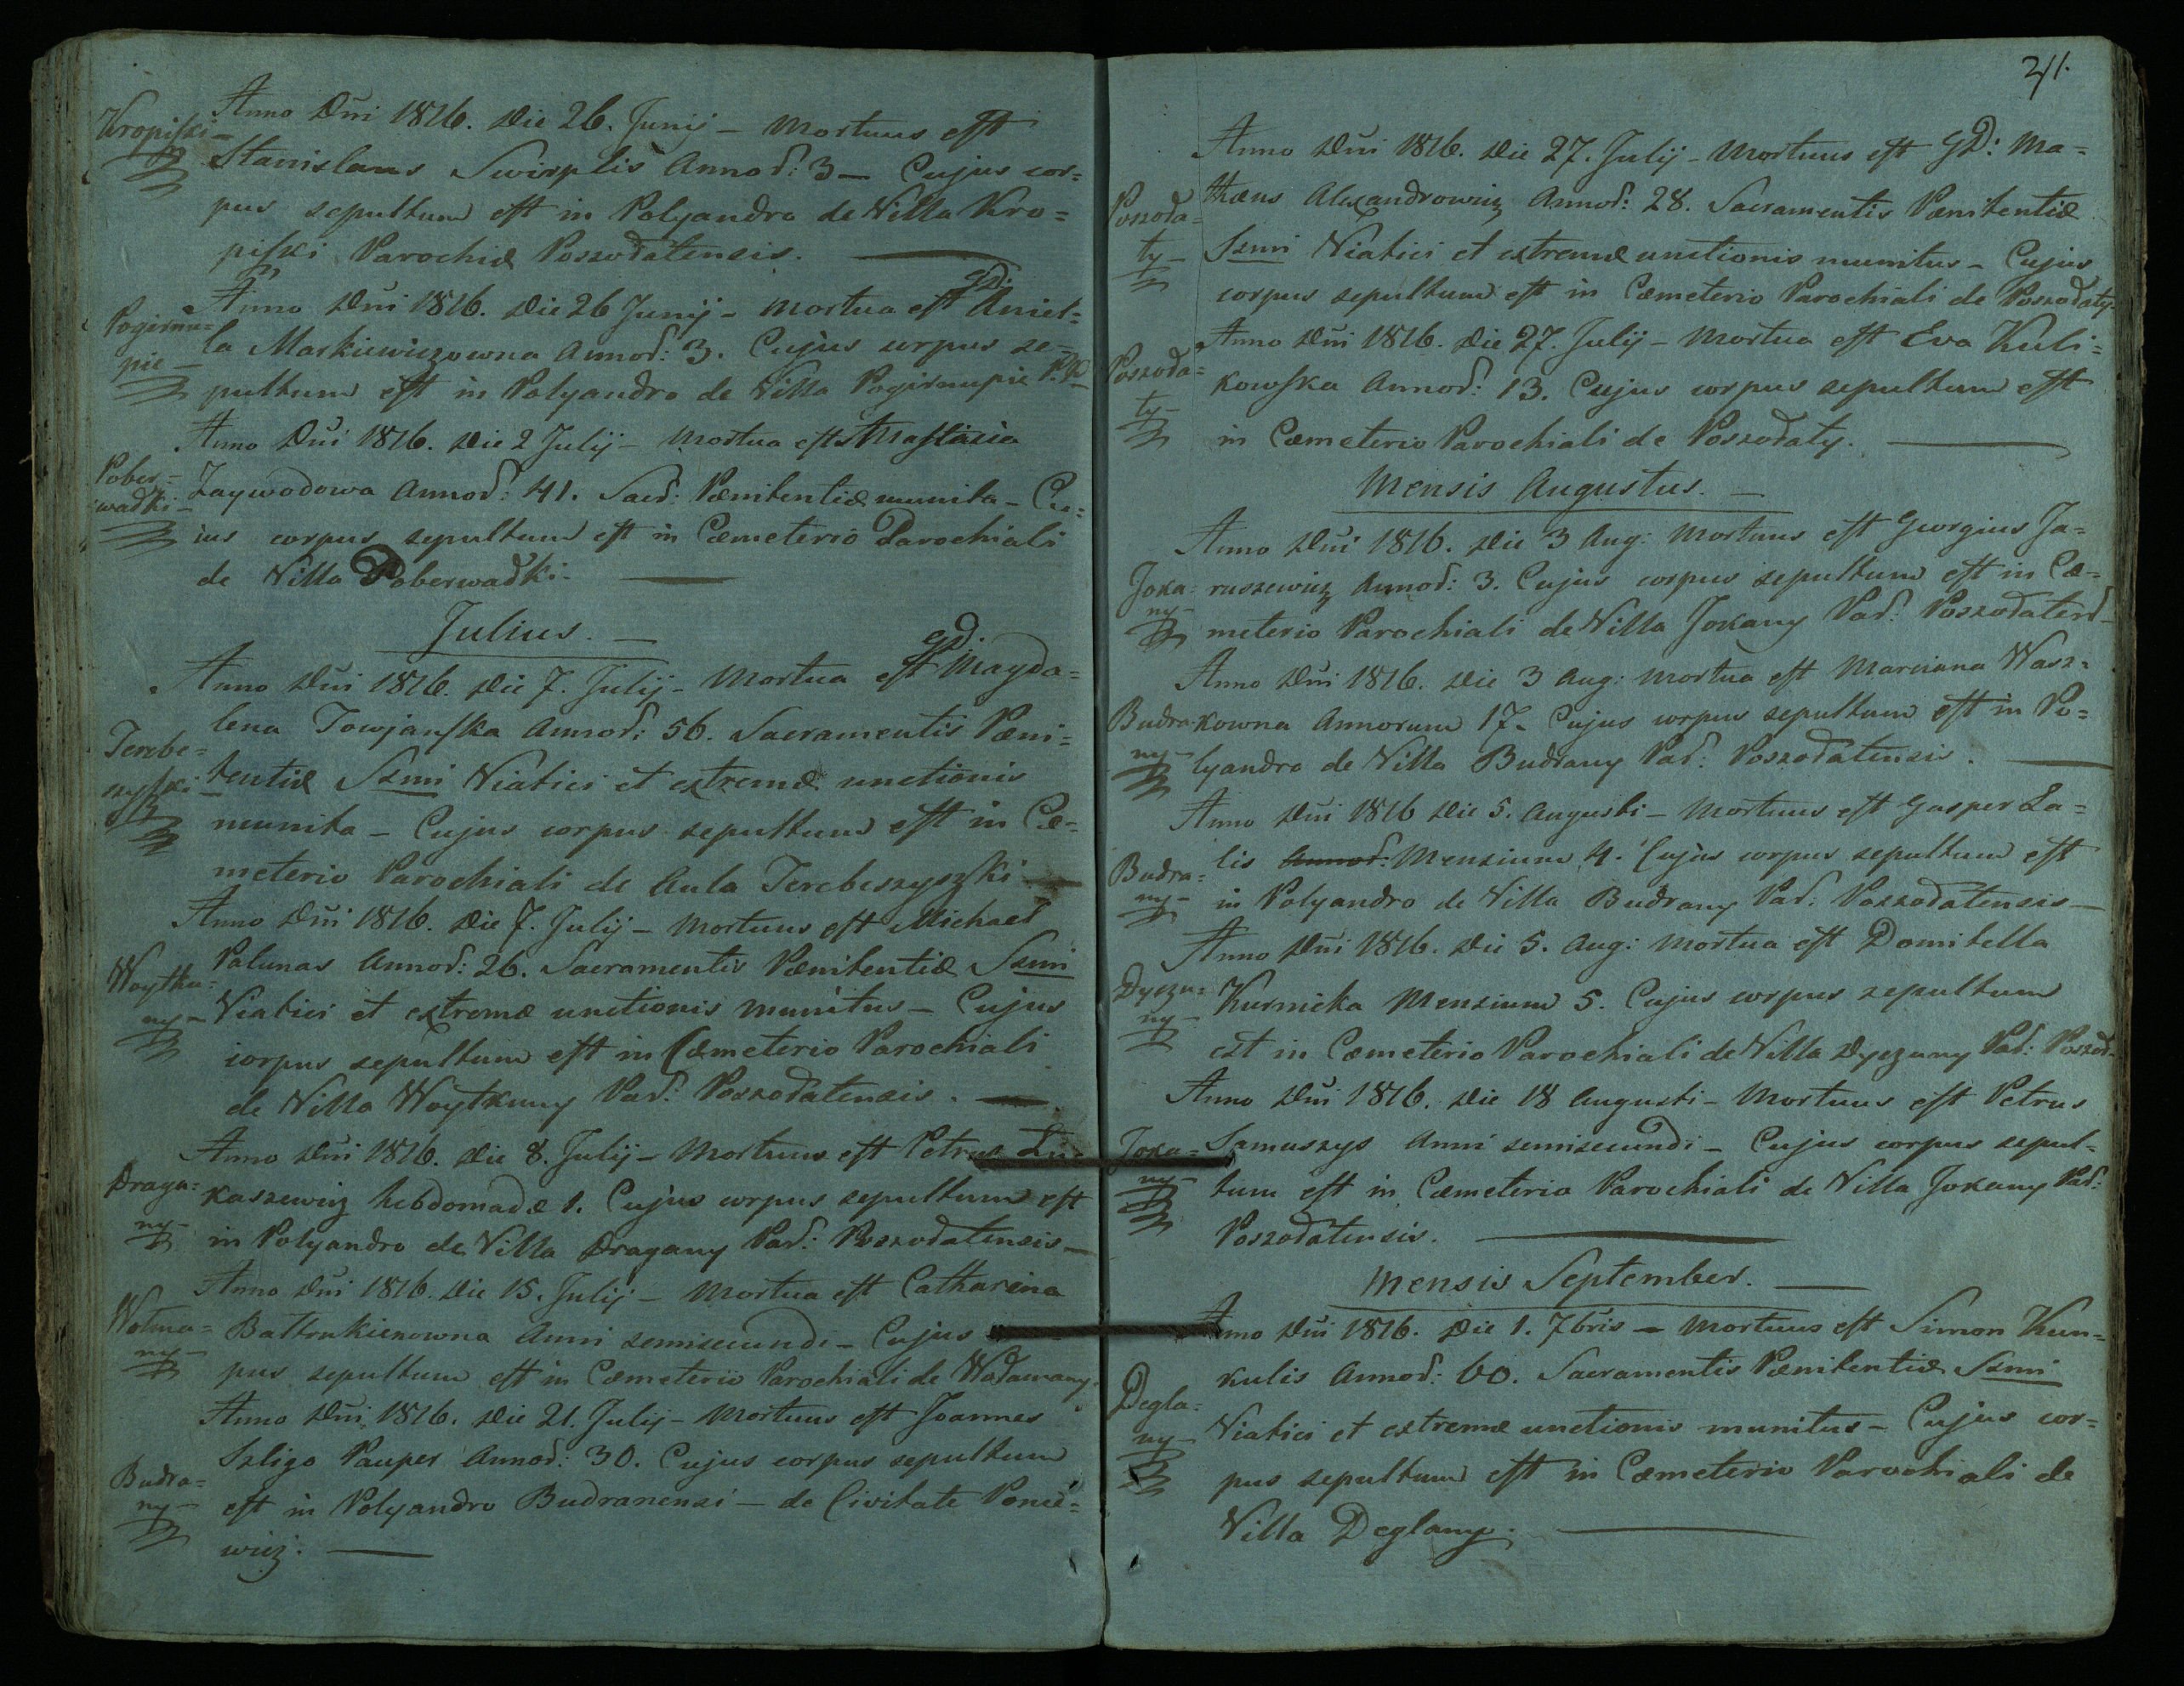 Kropiszki
Anno Dni 1816. Die 26. Junij – Mortuus est
Stanislaus Swirplis Annor: 3 – Cujus cor=
pus sepultum est in Polyandro de Villa Kro=
piszki Parochiæ Poszodatensis.
Pogirnu=
pie –
Anno Dni 1816. Die 26 Junij – Mortua est GD: Aniel=
la Markiewiczowna Annor: 3. Cujus corpus se=
pultum est in Polyandro de Villa Pogirnupie
Pober=
wadki –
Anno Dni 1816. Die 2 Julij – Mortua est Anastazia
Zaywodowa Annor: 41. Sacr: Pænitentiæ munita – Cu=
ius corpus sepultum est in Cæmeterio Parochiali
de Villa Poberwadki.
Julius. –
Terebe=
szyszki
Anno Dni 1816. Die 7. Julij – Mortua est GD. Magda=
lena Towjanska Annor: 56. Sacramentis Pæni=
tentiæ Sszmi Viatici et extremæ unctionis
munita – Cujus corpus sepultum est in Cæ=
meterio Parochiali de Aula Terebeszyszki.
Woytku=
ny –
Anno Dni 1816. Die 7. Julij – Mortuus est Michael
Palunas Annor: 26. Sacramentis Pænitentiæ Sszmi
Viatici et extremæ unctionis munitus – Cujus
corpus sepultum est in Cæmeterio Parochiali
de Villa Woytkuny Par: Poszodatensis.
Draga=
ny –
Anno Dni 1816. Die 8. Julij – Mortuus est Petrus Lu=
kaszewicz hebdomadæ 1. Cujus corpus sepultum est
in Polyandro de Villa Dragany Par: Poszodatensis –
ny –
Anno Dni 1816. Die 15. Julij – Mortua est Catharina
Baltrukienowna Anni semisecundi – Cujus
pus sepultum est in Cæmeterio Parochiali de
Budra=
ny –
Anno Dni 1816. Die 21. Julij – Mortuus est Joannes
Szligo Pauper Annor: 30. Cujus corpus sepultum
est in Polyandro Budranensi – de Civitate Ponie=
wiez.
211.
Poszoda=
ty –
Anno Dni 1816. Die 27. Julij – Mortuus est GD: Ma=
thæus Alexandrowicz Annor: 28. Sacramentis Pænitentiæ
Sszmi Viatici et extremæ unctionis munitus – Cujus
corpus sepultum est in Cæmeterio Parochiali de Poszodaty.
Poszoda=
ty –
Anno Dni 1816. Die 27. Julij – Mortua est Eva Kuli=
kowska Annor: 13. Cujus corpus sepultum est
in Cæmeterio Parochiali de Poszodaty.
Mensis Augustus. –
Joka=
ny –
Anno Dni 1816. Die 3 Aug: Mortuus est Georgius Ja=
ruszewicz Annor: 3. Cujus corpus sepultum est in Cæ=
meterio Parochiali de Villa Jokany Par: Poszodatens
Budra=
ny –
Anno Dni 1816. Die 3 Aug: Mortua est Marciana Wasz=
kowna Annorum 17. Cujus corpus sepultum est in Po=
lyandro de Villa Budrany Par: Poszodatensis.
Budra=
ny –
Anno Dni 1816 Die 5. Augusti – Mortuus est Gasper Za=
lis Annor: Mensium 4. Cujus corpus sepultum est
in Polyandro de Villa Budrany Par: Poszodatensis –
Dyczu=
ny –
Anno Dni 1816. Die 5. Aug: Mortua est Domitella
Kurnicka Mensium 5. Cujus corpus sepultum
est in Cæmeterio Parochiali de Villa Dyczuny Par: Poszod.
Joka=
ny –
Anno Dni 1816. Die 18 Augusti – Mortuus est Petrus
Samuszys Anni semisecundi – Cujus corpus sepul=
tum est in Cæmeterio Parochiali de Villa Jokany Par:
Poszodatensis.
Mensis September.
Degla=
ny –
Anno Dni 1816. Die 1. 7bris – Mortuus est Simon Kun=
kulis Annor: 60. Sacramentis Pænitentiæ Sszmi
Viatici et extremæ unctionis munitus – Cujus cor=
pus sepultum est in Cæmeterio Parochiali de
Villa Deglany.